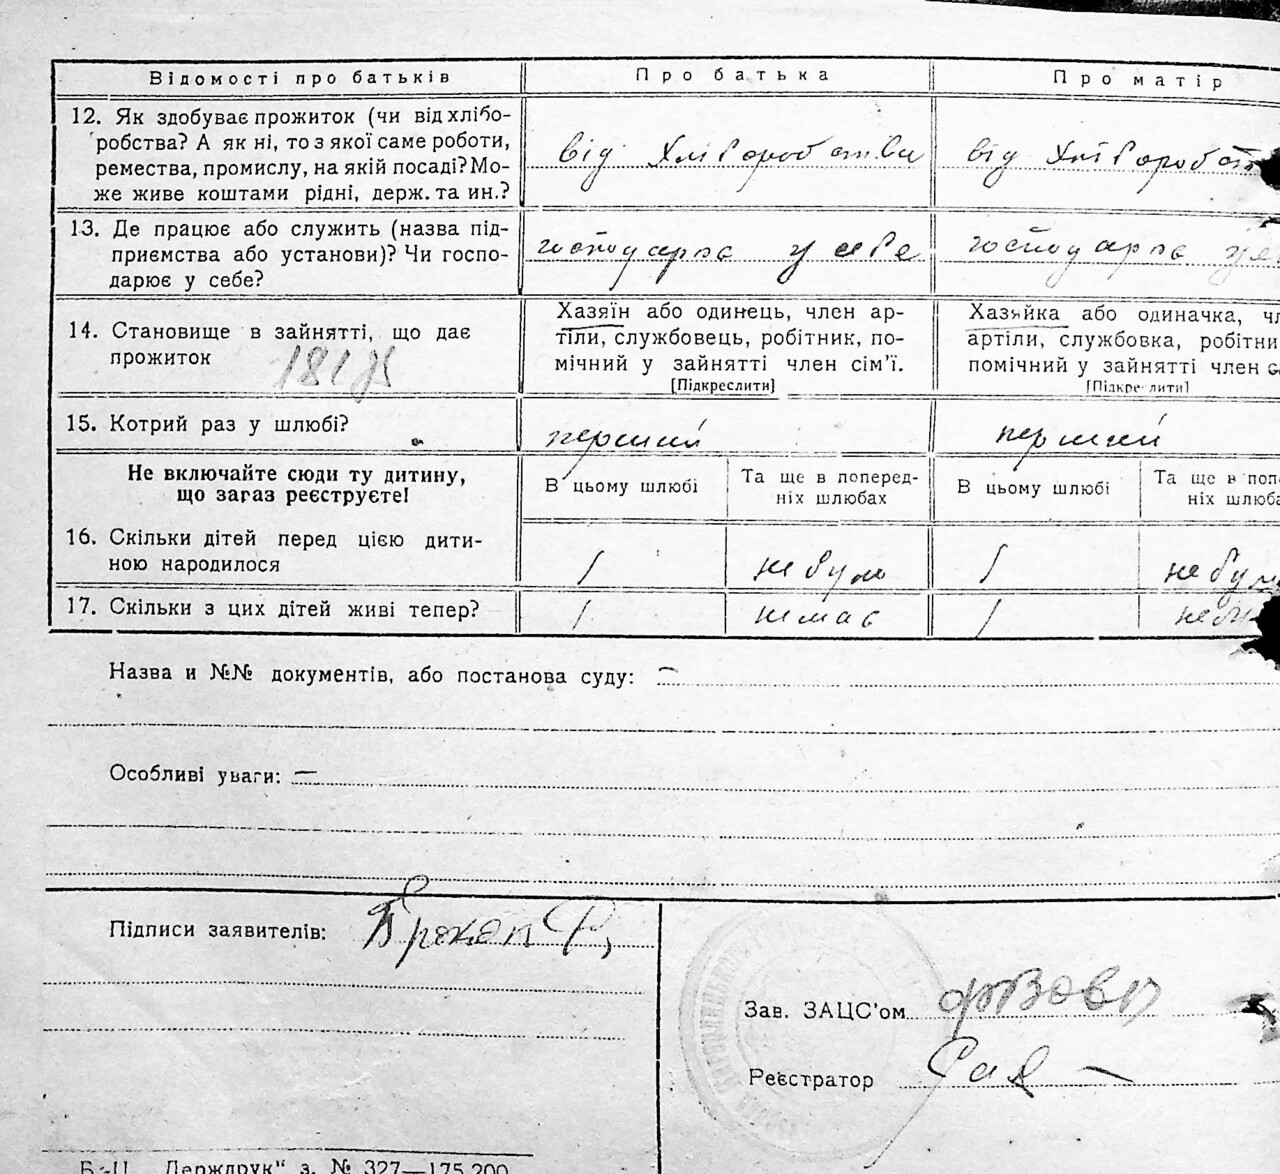 Відомості про батьків
Про батька
Про матір
12. Як здобуває прожиток (чи від хлібо-
робства? А як ні, то з якої саме роботи,
ремества, промислу, на якій посаді? Мо-
же живе коштами рідні, держ. та ин.?
від хліборобства
від хліборобст
13. Де працює або служить (назва під-
приємства або установи)? Чи госпо-
дарює у себе?
господарює у себе
господарює у се
14. Становище в зайнятті, що дає
прожиток
Хазяїн або одинець, член ар-
тіли, службовець, робітник, по-
мічний у зайнятті член сім'ї.
[Підкреслити]
Хазяйка або одиначка, чл
артіли, службовка, робітни
помічний у зайнятті член с
[Підкреслити]
15. Котрий раз у шлюбі?
перший
перший
Не включайте сюди ту дитину,
що загаз реєструєте!
В цьому шлюбі
Та ще в поперед-
ніх шлюбах
В цьому шлюбі
Та ще в попе
ніх шлюба
16. Скільки дітей перед цією дити-
ною народилося
1
не було
1
не було
17. Скільки з цих дітей живі тепер?
1
немає
1
Назва и №№ документів, або постанова суду: —
Особливі уваги: —
Підписи заявителів:
Зав. ЗАЦС'ом
Реєстратор
Б.-Ц. „Держдрук" з. № 327—175.200